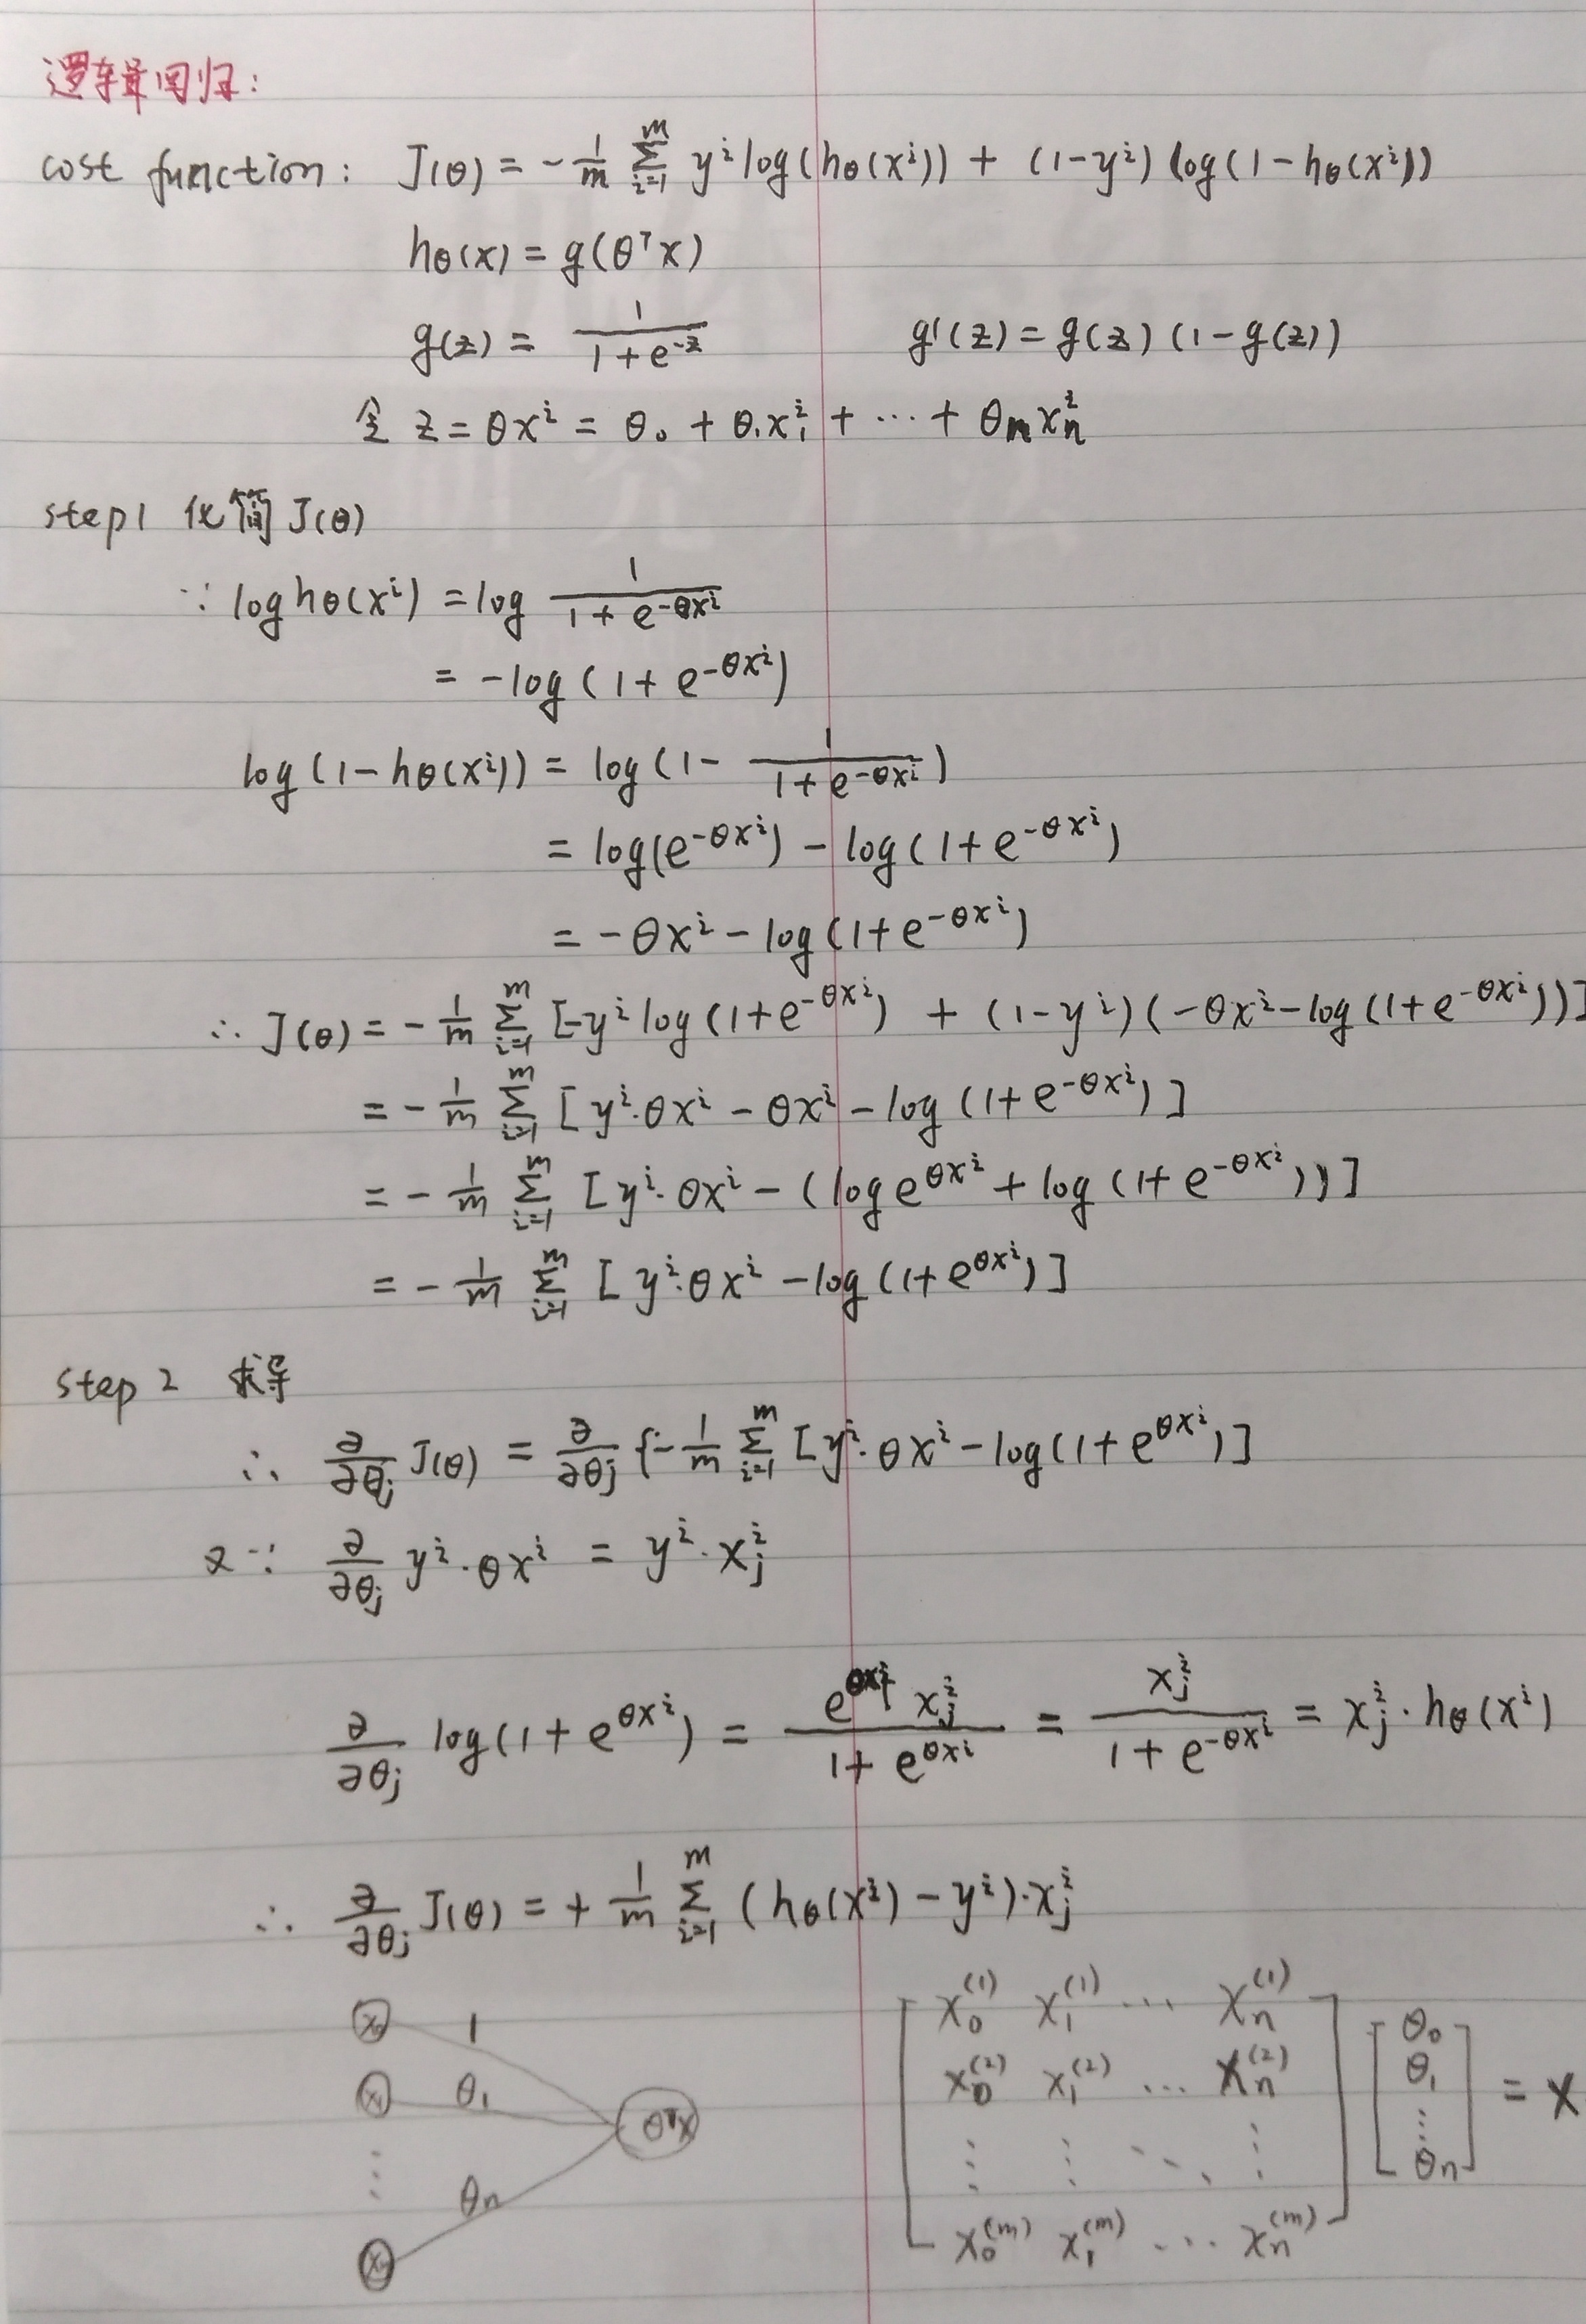 逻辑回归:
cost function: J(θ) = -1/m Σ_{i=1}^{m} y^i log(hθ(x^i)) + (1-y^i) log(1-hθ(x^i))
hθ(x) = g(θ^T x)
g(z) = 1/(1+e^{-z}) g'(z) = g(z)(1-g(z))
令 z = θx^i = θ₀ + θ₁x₁^i + ⋯ + θ_n x_n^i
step1 化简 J(θ)
∵ log hθ(x^i) = log 1/(1+e^{-θx^i})
= -log(1+e^{-θx^i})
log(1-hθ(x^i)) = log(1- 1/(1+e^{-θx^i}))
= log(e^{-θx^i}) - log(1+e^{-θx^i})
= -θx^i - log(1+e^{-θx^i})
∴ J(θ) = -1/m Σ_{i=1}^{m} [-y^i log(1+e^{-θx^i}) + (1-y^i)(-θx^i-log(1+e^{-θx^i}))]
= -1/m Σ_{i=1}^{m} [y^i·θx^i - θx^i - log(1+e^{-θx^i})]
= -1/m Σ_{i=1}^{m} [y^i·θx^i - (log e^{θx^i} + log(1+e^{-θx^i}))]
= -1/m Σ_{i=1}^{m} [y^i·θx^i - log(1+e^{θx^i})]
step 2 求导
∴ ∂/∂θ_j J(θ) = ∂/∂θ_j {-1/m Σ_{i=1}^{m} [y^i·θx^i - log(1+e^{θx^i})]
又∵ ∂/∂θ_j y^i·θx^i = y^i·x_j^i
∂/∂θ_j log(1+e^{θx^i}) = e^{θx^i} x_j^i/(1+e^{θx^i}) = x_j^i/(1+e^{-θx^i}) = x_j^i·hθ(x^i)
∴ ∂/∂θ_j J(θ) = + 1/m Σ_{i=1}^{m} (hθ(x^i) - y^i)·x_j^i
x₀ 1
x₁ θ₁
θ^T x
⋮ θn
xn
x₀^(1) x₁^(1) ⋯ x_n^(1) θ₀
x₀^(2) x₁^(2) ⋯ x_n^(2) θ₁ = X
⋮ ⋮ ⋱ ⋮ ⋮
x₀^(m) x₁^(m) ⋯ x_n^(m) θn